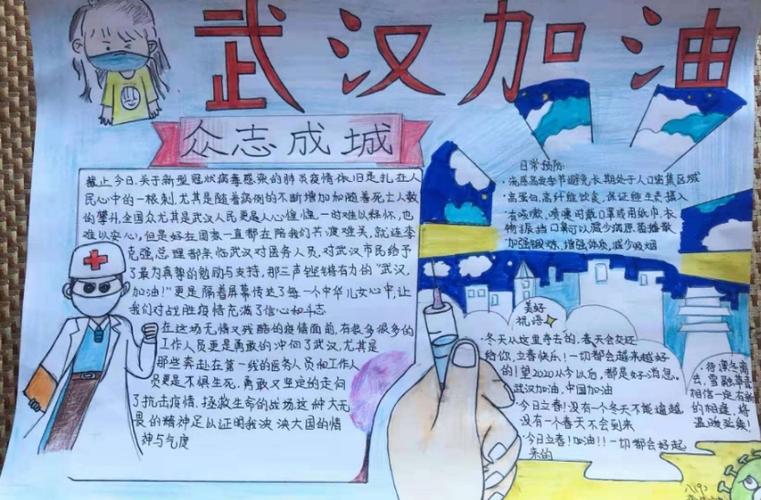 武汉加油
众志成城
截止今日,关于新型冠状病毒感染的肺炎疫情依旧是扎在人
民心中的一根刺,尤其是随着病例的不断增加和随着死亡人数
的攀升,全国众尤其是武汉人民更是人心惶惶,一时难以释怀,也
难以安心,但是好在国家一直都在陪我们共渡难关,就连李
克强总理都亲临武汉对医务人员,对武汉市民给予
了最为真挚的勉励与支持,那三声铿锵有力的“武汉,
加油!”更是隔着屏幕传达了每一个中华儿女心中,让
我们对战胜疫情充满了信心和斗志
在这场无情又残酷的疫情面前,有很多很多的
工作人员更是勇敢的冲向了武汉,尤其是
那些奔赴在第一线的医务人员和工作人
员更是不惧生死,勇敢又坚定的走向
了抗击疫情、拯救生命的战场,这种大无
畏的精神足以证明我泱泱大国的情
神与气度
日常预防:
·流感高发季节避免长期处于人口密集区域
·高蛋白,高纤维饮食,保证维生素摄入
·有咳嗽,喷嚏可戴口罩或用纸巾,衣
物振挡口鼻可以减少病原菌播散
·加强锻炼,增强体质,减少吸烟
美好
祝语
·冬天从这里夺去的,春天会交还
给你,立春快乐!一切都会越来越好
的!望2020从今以后,都是好消息。
武汉加油,中国加油
·今日立春!没有一个冬天不能逾越
没有一个春天不会到来
·今日立春!加油!!一切都会好起
来的
·待凛冬离
去,雪融草青
相信一定有新
的相逢,将
温暖延续!